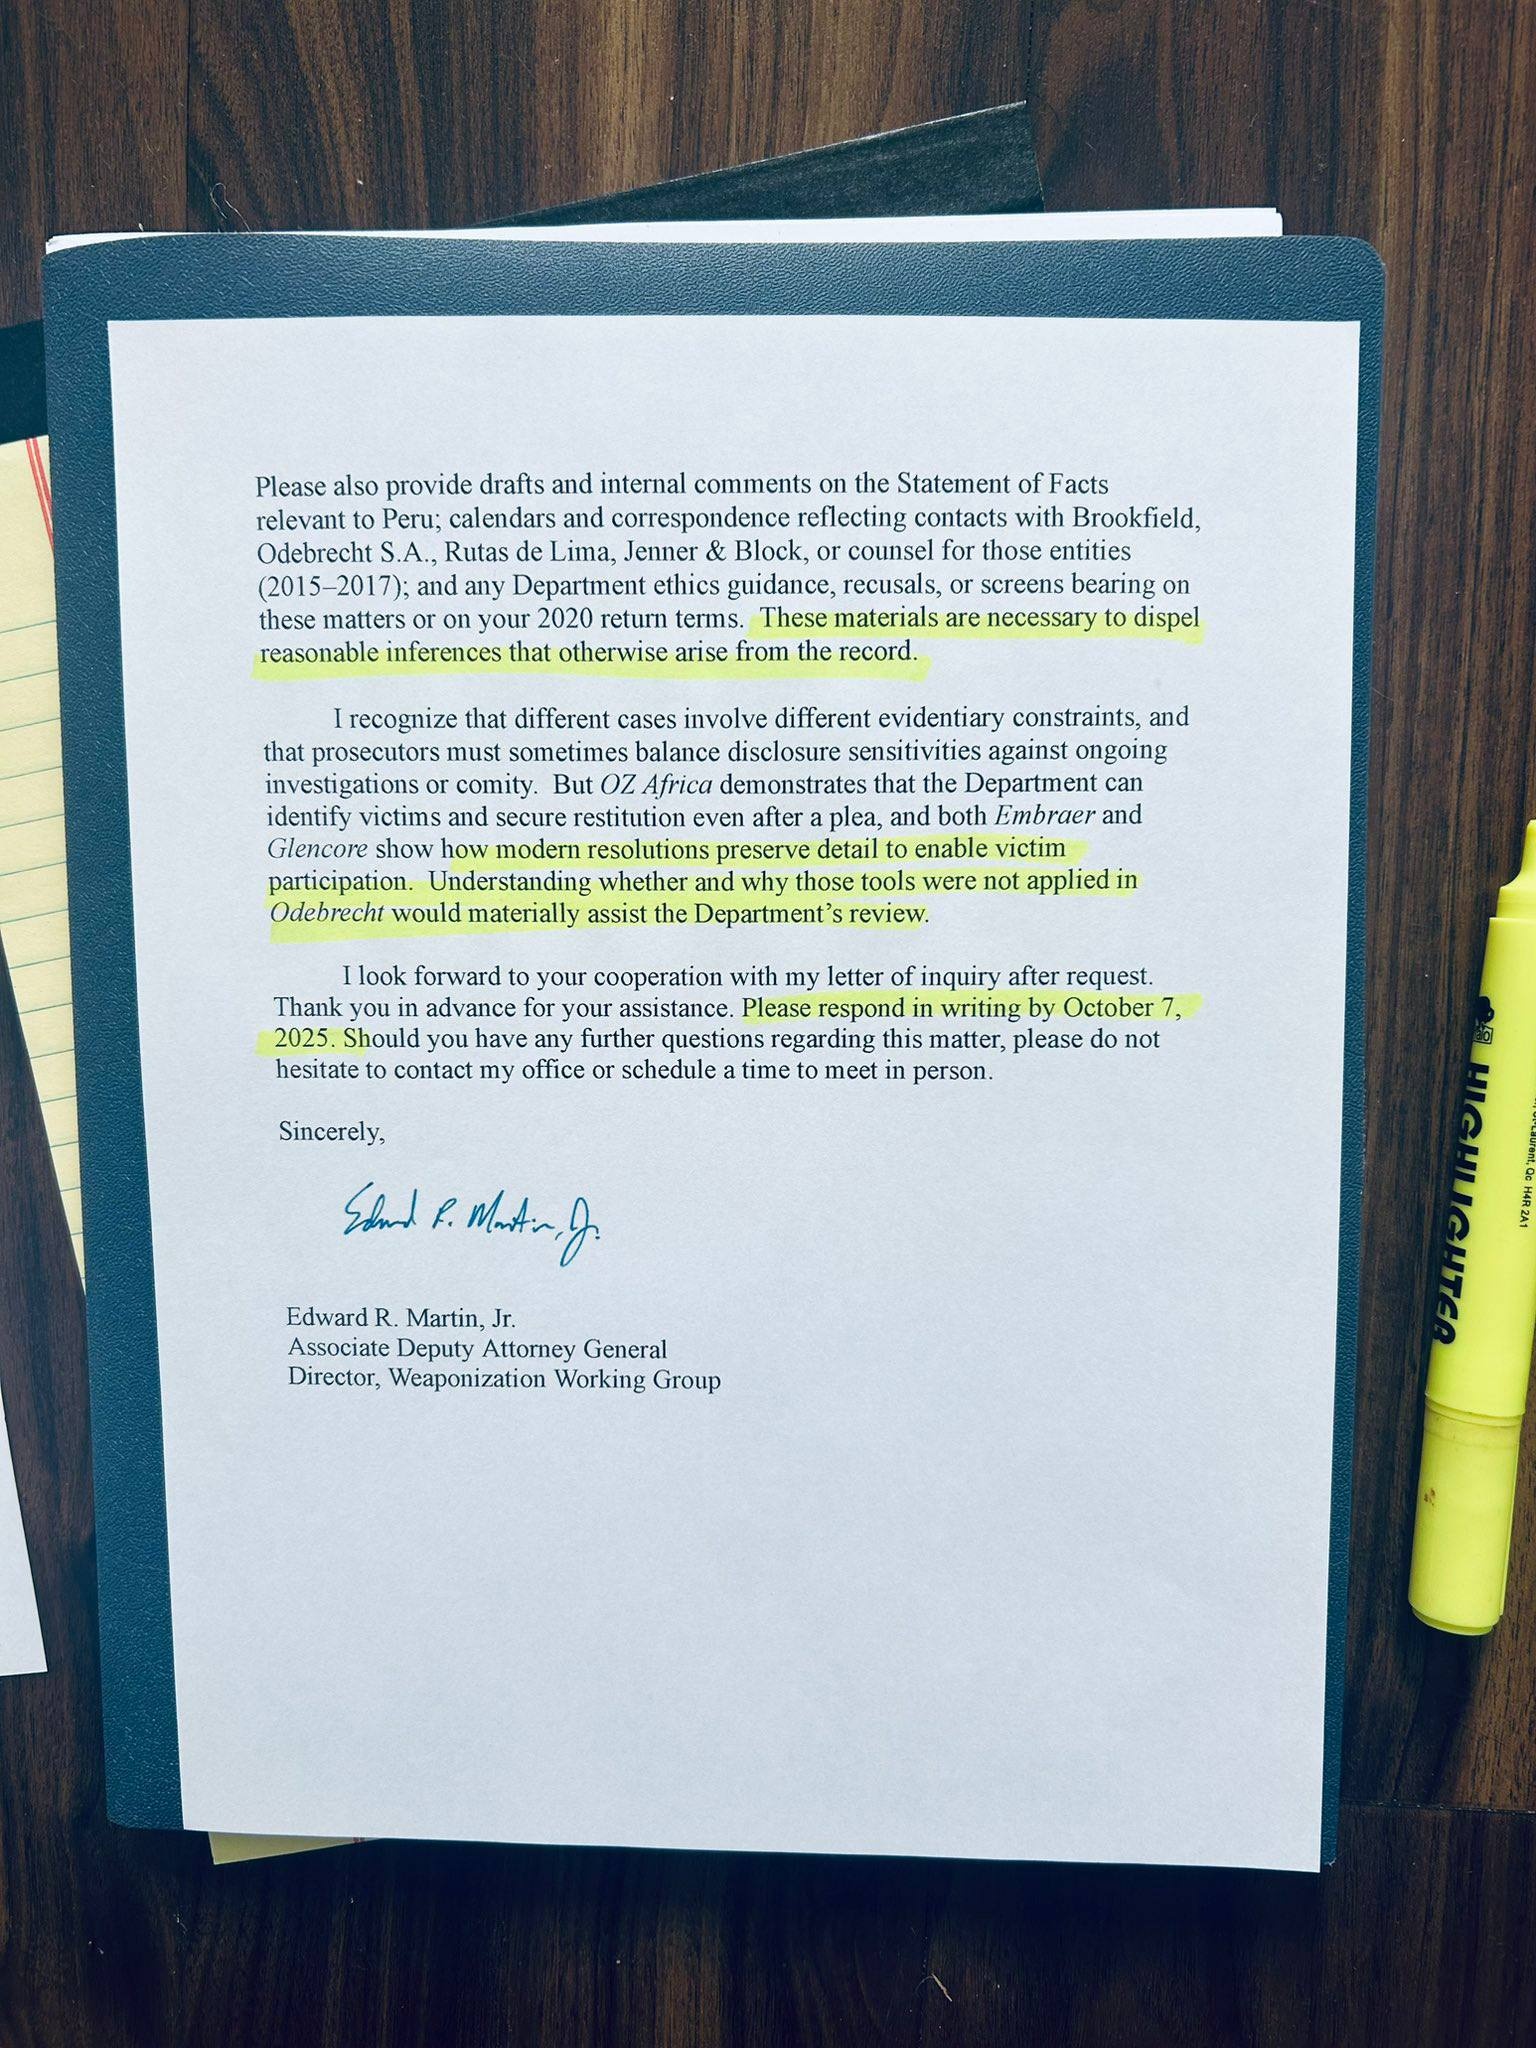 Please also provide drafts and internal comments on the Statement of Facts
relevant to Peru; calendars and correspondence reflecting contacts with Brookfield,
Odebrecht S.A., Rutas de Lima, Jenner & Block, or counsel for those entities
(2015–2017); and any Department ethics guidance, recusals, or screens bearing on
these matters or on your 2020 return terms. These materials are necessary to dispel
reasonable inferences that otherwise arise from the record.
I recognize that different cases involve different evidentiary constraints, and
that prosecutors must sometimes balance disclosure sensitivities against ongoing
investigations or comity. But OZ Africa demonstrates that the Department can
identify victims and secure restitution even after a plea, and both Embraer and
Glencore show how modern resolutions preserve detail to enable victim
participation. Understanding whether and why those tools were not applied in
Odebrecht would materially assist the Department's review.
I look forward to your cooperation with my letter of inquiry after request.
Thank you in advance for your assistance. Please respond in writing by October 7,
2025. Should you have any further questions regarding this matter, please do not
hesitate to contact my office or schedule a time to meet in person.
Sincerely,
Edward R. Martin, Jr.
Edward R. Martin, Jr.
Associate Deputy Attorney General
Director, Weaponization Working Group
HIGHLIGHTER
Laurent, Qc H4R 2A1